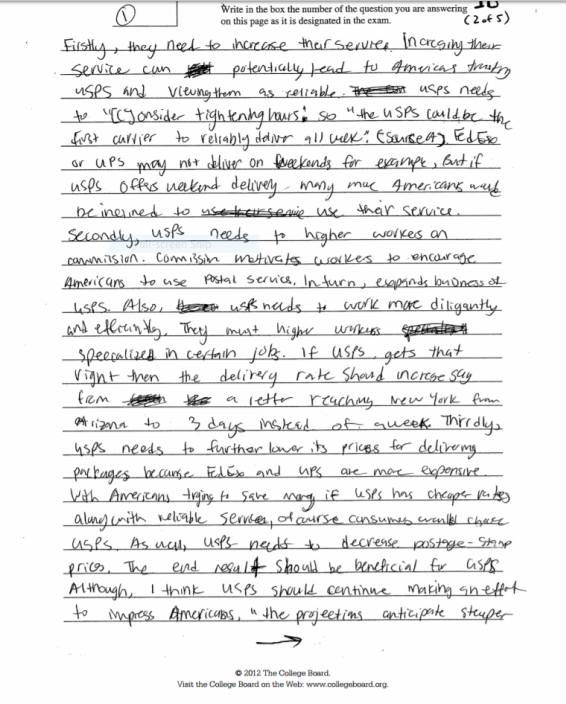 1
Write in the box the number of the question you are answering
on this page as it is designated in the exam.
(2 of 5)
Firstly, they need to increase their service. Increasing their
service can potentially lead to Americas trusting
USPS and viewing them as reliable. USPS needs
to "[C]onsider tightening hours" so "the USPS could be the
first carrier to reliably deliver all week" (Source A). FedEx
or UPS may not deliver on weekends for example, but if
USPS offers weekend delivery many more Americans would
be inclined to use their service.
Secondly, USPS needs to higher workers on
commission. Commission motivates workers to encourage
Americans to use Postal Service, in turn, expands business of
USPS. Also, USPS needs to work more diligantly
and efficiently. They must higher workers
specialized in certain jobs. If USPS gets that
right then the delivery rate should increse say
from a letter reaching New York from
Arizona to 3 days instead of a week. Thirdly,
USPS needs to further lower its prices for delivering
packages because FedEx and UPS are more expensive
With Americans trying to save money if USPS has cheaper rates
along with reliable service, of course consumers would choose
USPS. As well, USPS needs to decrease postage-stamp
prices. The end result should be beneficial for USPS
Although, I think USPS should continue making an effort
to impress Americans, "the projections anticipate steeper
© 2012 The College Board.
Visit the College Board on the Web: www.collegeboard.org.